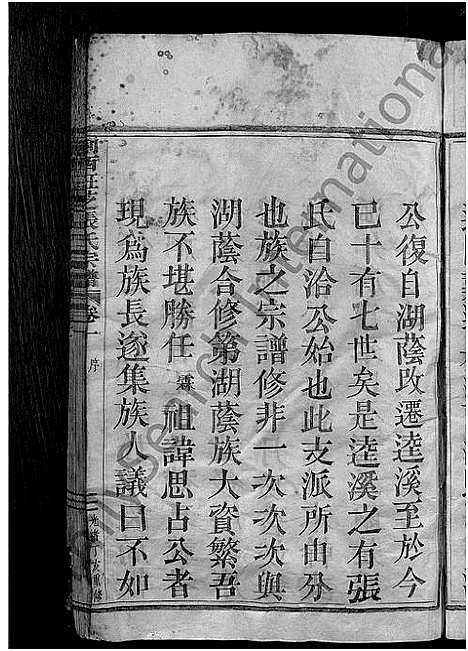 公復自湖蔭改遷逵溪至於今
已十有七世矣是逵溪之有張
氏自洽公始也此支派所由分
也族之宗譜修非一次次次與
湖蔭合修第湖蔭族大資繁吾
族不堪勝任霖祖諱思占公者
現為族長遂集族人議曰不如
張氏宗譜 卷一 序